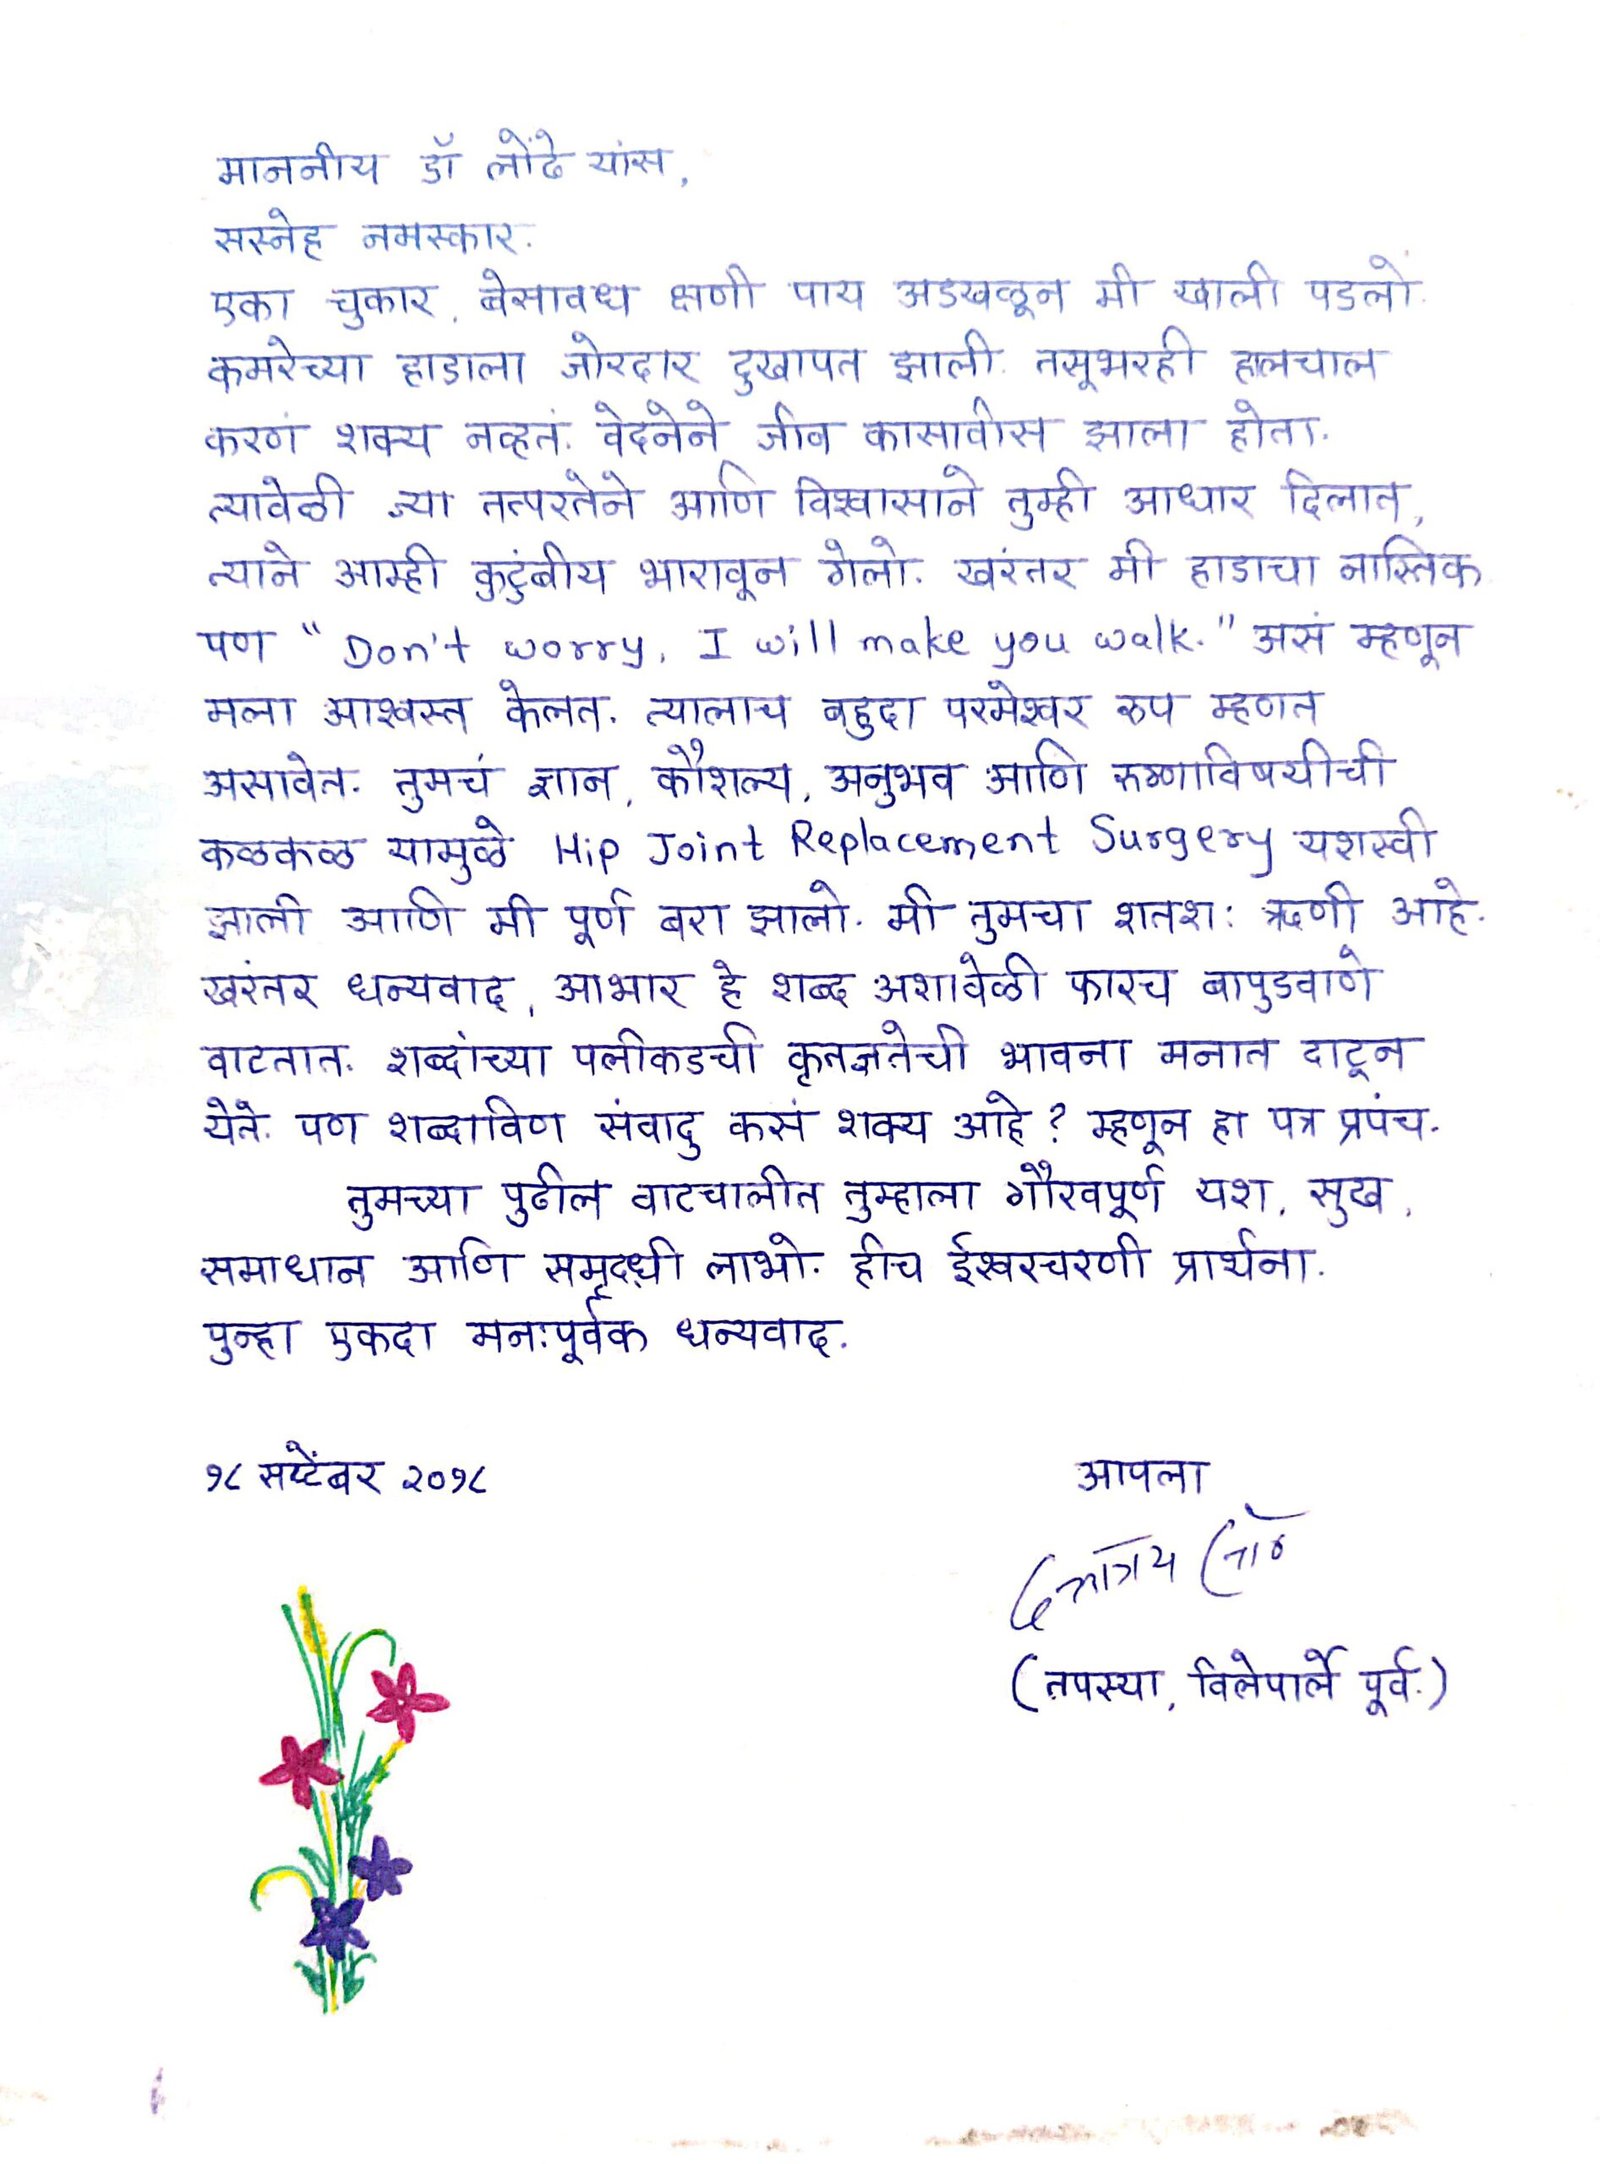 माननीय डॉ लोंढे यांस,
सस्नेह नमस्कार.
एका चुकार, बेसावध क्षणी पाय अडखळून मी खाली पडलो.
कमरेच्या हाडाला जोरदार दुखापत झाली. तसूभरही हालचाल
करणं शक्य नव्हतं. वेदनेने जीव कासावीस झाला होता.
त्यावेळी ज्या तत्परतेने आणि विश्वासाने तुम्ही आधार दिलात,
त्याने आम्ही कुटुंबीय भारावून गेलो. खरंतर मी हाडाचा नास्तिक
पण "Don't worry, I will make you walk." असं म्हणून
मला आश्वस्त केलत. त्यालाच बहुदा परमेश्वर रुप म्हणत
असावेत. तुमचं ज्ञान, कौशल्य, अनुभव आणि रुग्णाविषयीची
कळकळ यामुळे Hip Joint Replacement Surgery यशस्वी
झाली आणि मी पूर्ण बरा झालो. मी तुमचा शतश: ऋणी आहे.
खरंतर धन्यवाद, आभार हे शब्द अशावेळी फारच बापुडवाणे
वाटतात. शब्दांच्या पलीकडची कृतज्ञतेची भावना मनात दाटून
येते. पण शब्दाविण संवादु कसं शक्य आहे? म्हणून हा पत्र प्रपंच.
तुमच्या पुढील वाटचालीत तुम्हाला गौरवपूर्ण यश, सुख,
समाधान आणि समृद्धी लाभो. हीच ईश्वरचरणी प्रार्थना.
पुन्हा एकदा मन:पूर्वक धन्यवाद.
१८ सप्टेंबर २०१८
आपला
(तपस्या, विलेपार्ले पूर्व.)